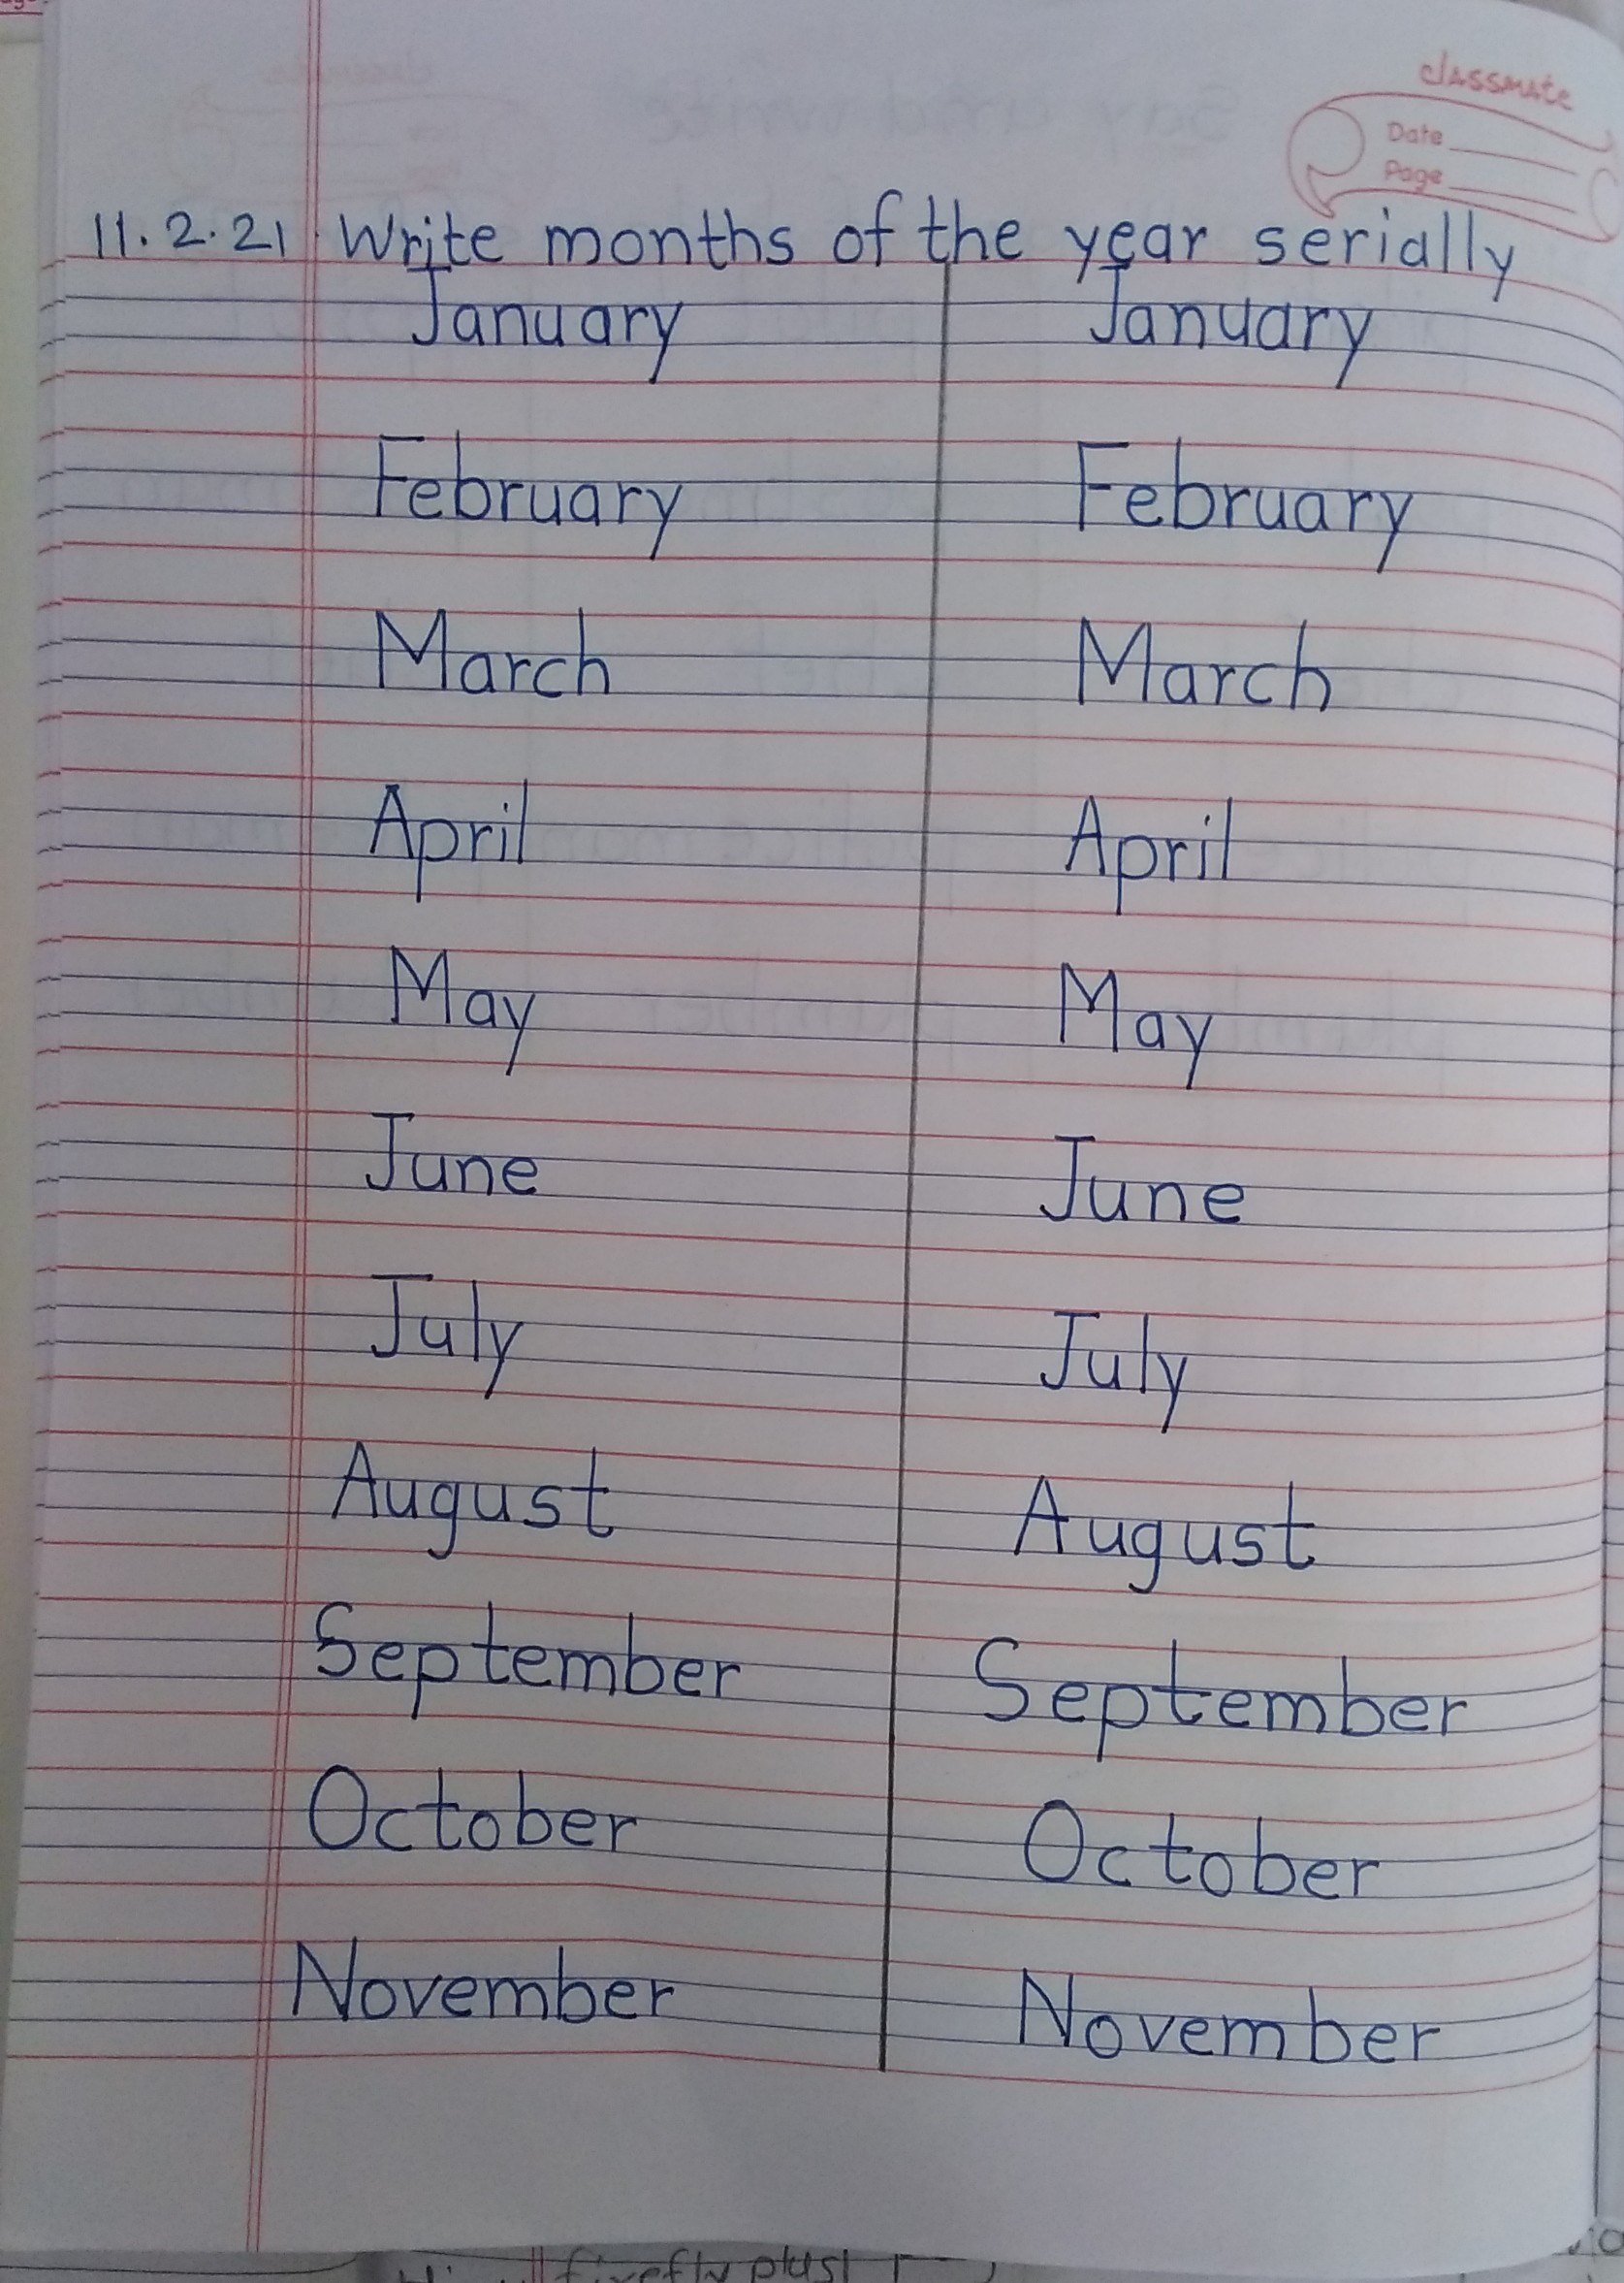 classmate
Date
Page
11.2.21 Write months of the year serially
January January
February February
March March
April April
May May
June June
July July
August August
September September
October October
November November
firefly plus